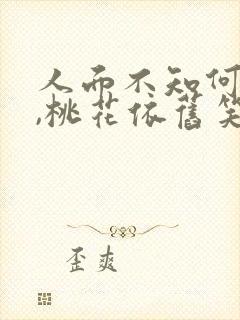 人而不知何
,桃花依舊笑
歪爽